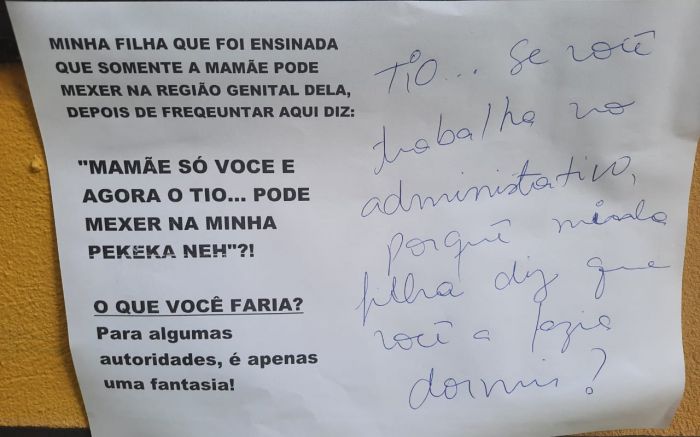 MINHA FILHA QUE FOI ENSINADA
QUE SOMENTE A MAMÃE PODE
MEXER NA REGIÃO GENITAL DELA,
DEPOIS DE FREQEUNTAR AQUI DIZ:
"MAMÃE SÓ VOCE E
AGORA O TIO... PODE
MEXER NA MINHA
PEKEKA NEH"?!
O QUE VOCÊ FARIA?
Para algumas
autoridades, é apenas
uma fantasia!
TIO... Se você
trabalha no
administrativo,
porquê minha
filha diz que
você a fazia
dormir?